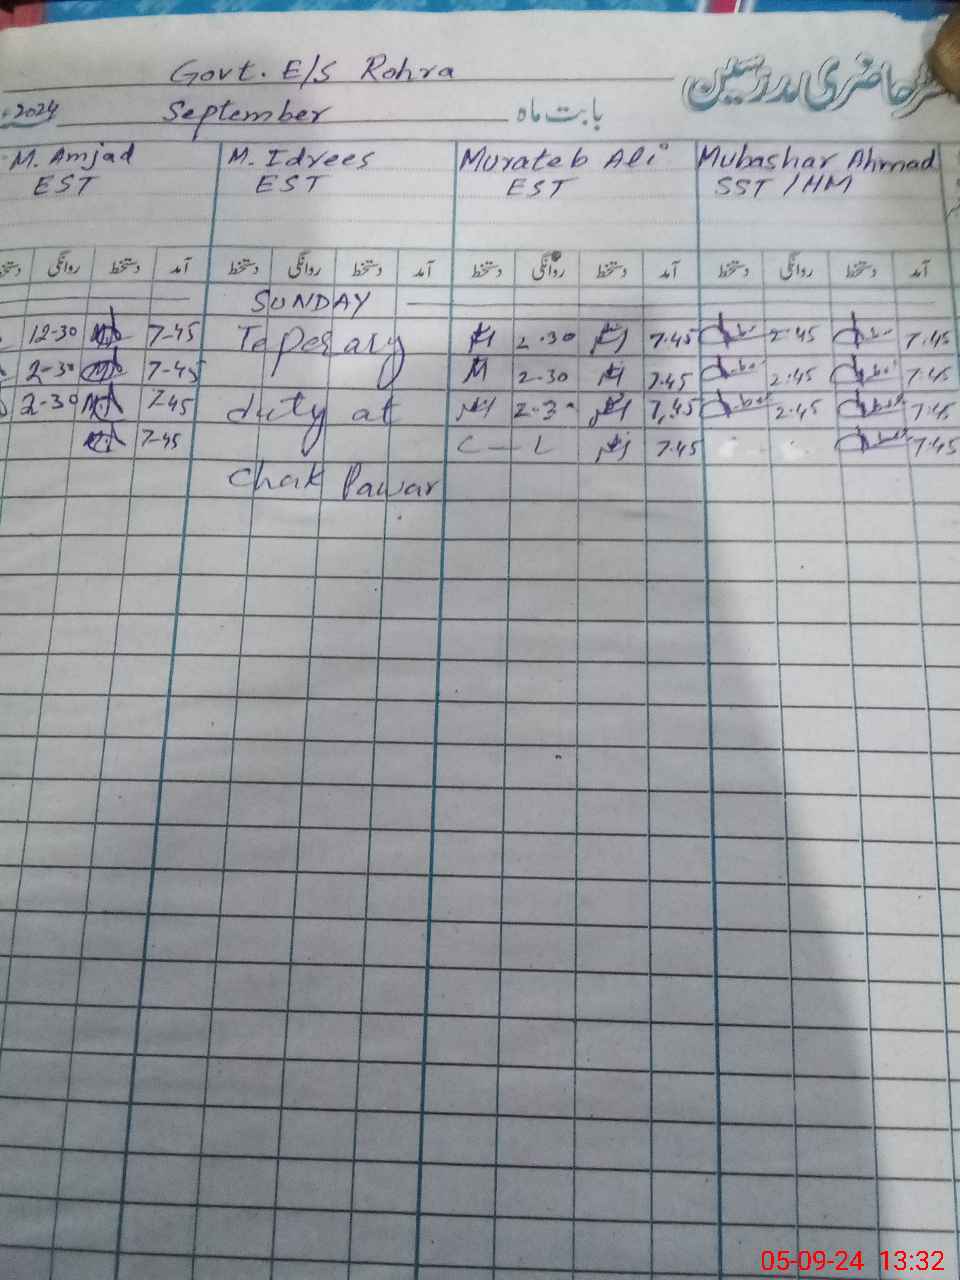 Govt. E/S Rohra
رجسٹر حاضری مدرسین
2024 September بابت ماہ
M. Amjad M. Idrees Murateb Ali Mubashar Ahmad
EST EST EST SST / HM
روانگی دستخط آمد دستخط روانگی دستخط آمد دستخط روانگی دستخط آمد دستخط روانگی دستخط آمد
SUNDAY
12-30 7-45 Teperary 2.30 7.45 2.45 7.45
2-30 7-45 2.30 7.45 2.45 7.45
2-30 7-45 duty at 2-30 7.45 2.45 7.45
7-45 C-L 7.45 7.45
Chak Pawar
05-09-24 13:32